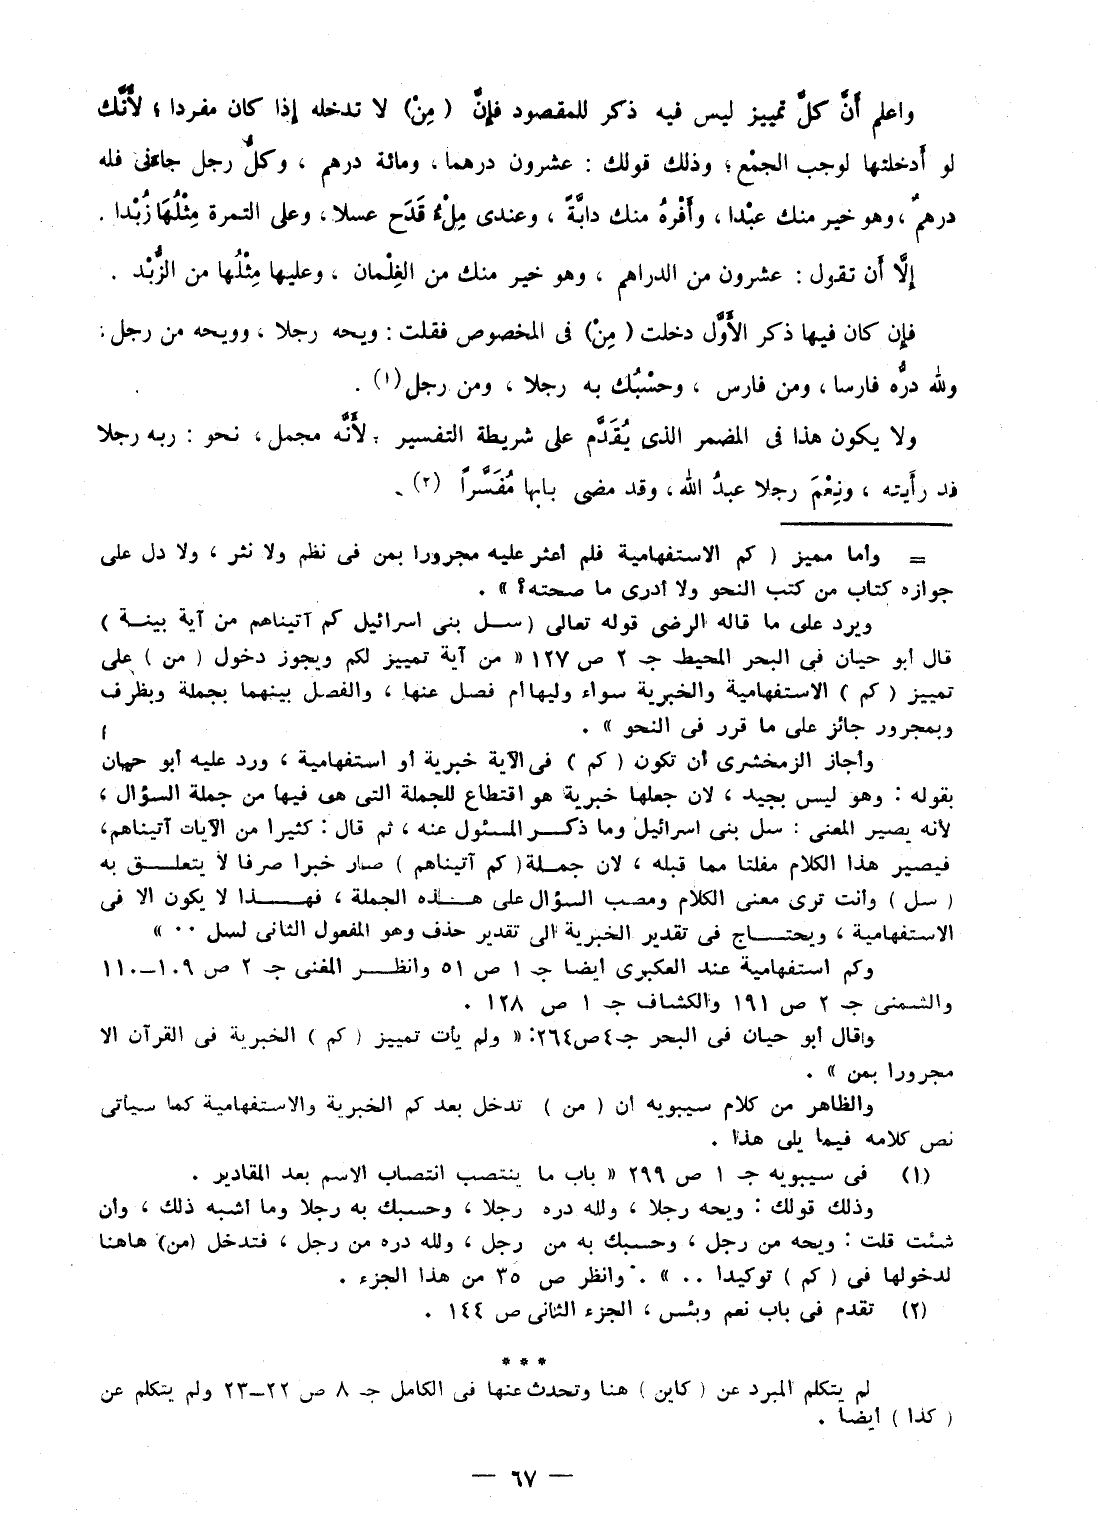 واعلم أَنَّ كلَّ تمييز ليس فيه ذكر للمقصود فإنَّ ( مِنْ) لا تدخله إذا كان مفردا ؛ لأَنَّك
لو أَدخلتها لوجب الجمْع ؛ وذلك قولك : عشرون درهما ، ومائة درهم ، وكلُّ رجل جاءنى فله
درهمٌ ، وهو خير منك عبْدا ، وأَفْرهُ منك دابَّةً ، وعندى مِلْءُ قَدَح عسلا ، وعلى التمرة مِثْلُهَا زُبْدا .
إلَّا أَن تقول : عشرون من الدراهم ، وهو خير منك من الغِلْمان ، وعليها مِثْلُها من الزُّبْد .
فإن كان فيها ذكر الأَوَّل دخلت ( مِنْ) فى المخصوص فقلت : ويحه رجلا ، وويحه من رجل ؛
ولله درُّه فارسا ، ومن فارس ، وحسْبُك به رجلا ، ومن رجل (١) .
ولا يكون هذا فى المضمر الذى يُقَدَّم على شريطة التفسير ؛ لأَنَّه مجمل ، نحو : ربه رجلا
قد رأَيته ، ونِعْمَ رجلا عبدُ الله ، وقد مضى بابها مُفَسَّراً (٢) .
= وأما مميز ( كم الاستفهامية فلم أعثر عليه مجرورا بمن فى نظم ولا نثر ، ولا دل على
جوازه كتاب من كتب النحو ولا أدرى ما صحته؟ » .
ويرد على ما قاله الرضى قوله تعالى (سـل بنى اسرائيل كم آتيناهم من آية بينـة )
قال أبو حيان فى البحر المحيط جـ ٢ ص ١٢٧ « من آية تمييز لكم ويجوز دخول ( من ) على
تمييز ( كم ) الاستفهامية والخبرية سواء وليها أم فصل عنها ، والفصل بينهما بجملة وبظرف
وبمجرور جائز على ما قرر فى النحو » .
وأجاز الزمخشرى أن تكون ( كم ) فى الآية خبرية أو استفهامية ، ورد عليه أبو حيان
بقوله : وهو ليس بجيد ، لان جعلها خبرية هو اقتطاع للجملة التى هى فيها من جملة السؤال ،
لأنه يصير المعنى : سل بنى اسرائيل وما ذكـر المسئول عنه ، ثم قال : كثيرا من الآيات آتيناهم،
فيصير هذا الكلام مفلتا مما قبله ، لان جمـلة ( كم آتيناهم ) صار خبرا صرفا لا يتعلـق به
( سل ) وأنت ترى معنى الكلام ومصب السؤال على هـذه الجملة ، فهـذا لا يكون الا فى
الاستفهامية ، ويحتـاج فى تقدير الخبرية الى تقدير حذف وهو المفعول الثانى لسل ٠٠ »
وكم استفهامية عند العكبرى أيضا جـ ١ ص ٥١ وانظـر المغنى جـ ٢ ص ١٠٩ــ١١٠
والشمنى جـ ٢ ص ١٩١ والكشاف جـ ١ ص ١٢٨ .
وقال أبو حيان فى البحر جـ٤ص٢٦٤: « ولم يأت تمييز ( كم ) الخبرية فى القرآن الا
مجرورا بمن » .
والظاهر من كلام سيبويه أن ( من ) تدخل بعد كم الخبرية والاستفهامية كما سيأتى
نص كلامه فيما يلى هذا .
(١) فى سيبويه جـ ١ ص ٢٩٩ « باب ما ينتصب انتصاب الاسم بعد المقادير .
وذلك قولك : ويحه رجلا ، ولله دره رجلا ، وحسبك به رجلا وما أشبه ذلك ، وأن
شئت قلت : ويحه من رجل ، وحسبك به من رجل ، ولله دره من رجل ، فتدخل (من) هاهنا
لدخولها فى ( كم ) توكيدا .. » . وانظر ص ٣٥ من هذا الجزء .
(٢) تقدم فى باب نعم وبئس ، الجزء الثانى ص ١٤٤ .
***
لم يتكلم المبرد عن ( كاين ) هنا وتحدث عنها فى الكامل جـ ٨ ص ٢٢ــ٢٣ ولم يتكلم عن
( كذا ) أيضا .
— ٦٧ —